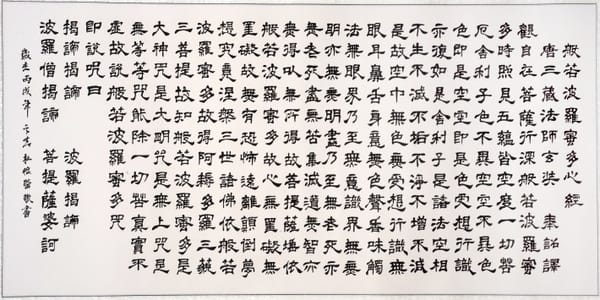 般若波羅蜜多心經
唐三藏法師玄奘 奉詔譯
觀自在菩薩行深般若波羅蜜
多時照見五蘊皆空度一切苦
厄舍利子色不異空空不異色
色即是空空即是色受想行識
亦復如是舍利子是諸法空相
不生不滅不垢不淨不增不減
是故空中無色無受想行識無
眼耳鼻舌身意無色聲香味觸
法無眼界乃至無意識界無無
明亦無無明盡乃至無老死亦
無老死盡無苦集滅道無智亦
無得以無所得故菩提薩埵依
般若波羅蜜多故心無罣礙無
罣礙故無有恐怖遠離顛倒夢
想究竟涅槃三世諸佛依般若
波羅蜜多故得阿耨多羅三藐
三菩提故知般若波羅蜜多是
大神咒是大明咒是無上咒是
無等等咒能除一切苦真實不
虛故說般若波羅蜜多咒
即說咒曰
揭諦揭諦 波羅揭諦
波羅僧揭諦 菩提薩婆訶
丙戌年 敬書